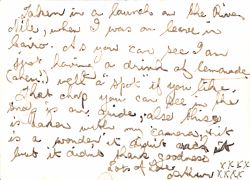 Taken in a launch on the River
Nile, when I was on leave in
Cairo. As you can see I am
just having a drink of lemonade
(ahem) with a "spot" if you like.
That chap you can see in the
snap is our guide, also this
is taken with my camera, it
is a wonder it didn't crack it
but it didn't thank goodness
Lots of Love
Arthur
xxxx
xxxx